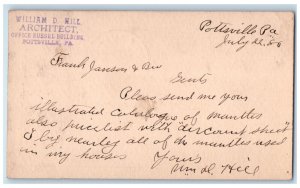 WILLIAM D. HILL
ARCHITECT,
OFFICE RUSSEL BUILDING,
POTTSVILLE, PA.
Pottsville Pa
July 22,
Frank Janson & Bro
Gents
Pleas send me your
Illustrated catalogue of mantles
also pricelist with "discount sheet"
I buy nearley all of the mantles used
in my houses
Yours
Wm D. Hill